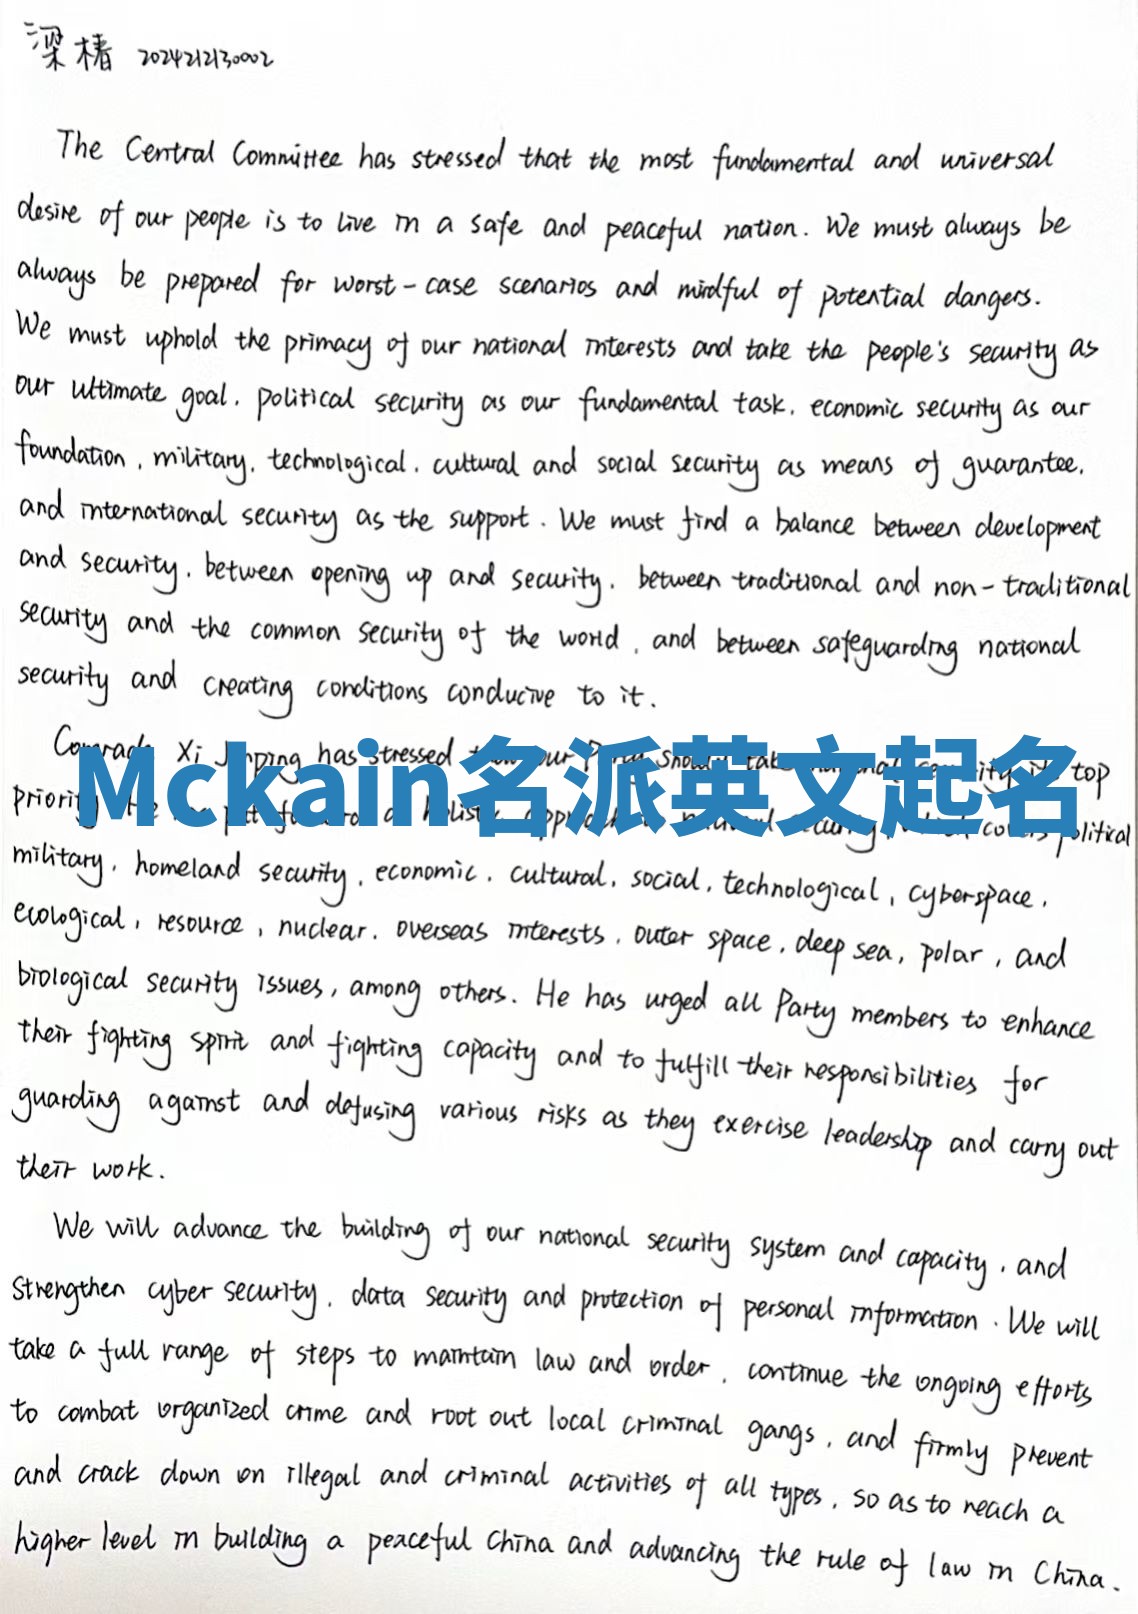 梁椿 2024212130002
The Central Committee has stressed that the most fundamental and universal
desire of our people is to live in a safe and peaceful nation. We must always be
always be prepared for worst-case scenarios and mindful of potential dangers.
We must uphold the primacy of our national interests and take the people's security as
our ultimate goal, political security as our fundamental task, economic security as our
foundation, military, technological, cultural and social security as means of guarantee,
and international security as the support. We must find a balance between development
and security, between opening up and security, between traditional and non-traditional
security and the common security of the world, and between safeguarding national
security and creating conditions conducive to it.
Comrade Xi Jinping has stressed our Party should top
Mckain名派英文起名
priority political
military, homeland security, economic, cultural, social, technological, cyberspace,
ecological, resource, nuclear, overseas interests, outer space, deep sea, polar, and
biological security issues, among others. He has urged all Party members to enhance
their fighting spirit and fighting capacity and to fulfill their responsibilities for
guarding against and defusing various risks as they exercise leadership and carry out
their work.
We will advance the building of our national security system and capacity, and
strengthen cyber security, data security and protection of personal information. We will
take a full range of steps to maintain law and order, continue the ongoing efforts
to combat organized crime and root out local criminal gangs, and firmly prevent
and crack down on illegal and criminal activities of all types, so as to reach a
higher level in building a peaceful China and advancing the rule of law in China.